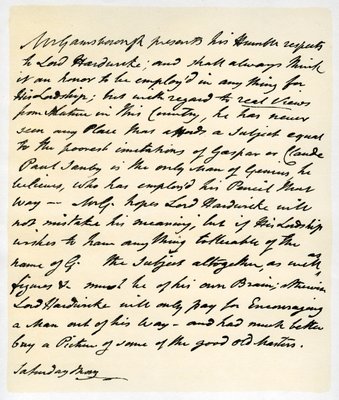 Mr Gainsborough presents his Humble respects
to Lord Hardwicke; and shall always think
it an honor to be employ'd in any thing for
His Lordship; but with regard to real Views
from Nature in this Country, he has never
seen any Place that affords a Subject equal
to the poorest imitations of Gaspar or Claude
Paul Sanby is the only Man of Genius, he
believes, who has employ'd his Pencil that
way — Mr G. hopes Lord Hardwicke will
not mistake his meaning, but if His Lordship
wishes to have any thing tollerable of the
name of G. the Subject altogether, as well as
figures &c must be of his own Brain; otherwise
Lord Hardwicke will only pay for Encouraging
a Man out of his way — and had much better
buy a Picture of some of the good Old Masters.
Saturday Morg